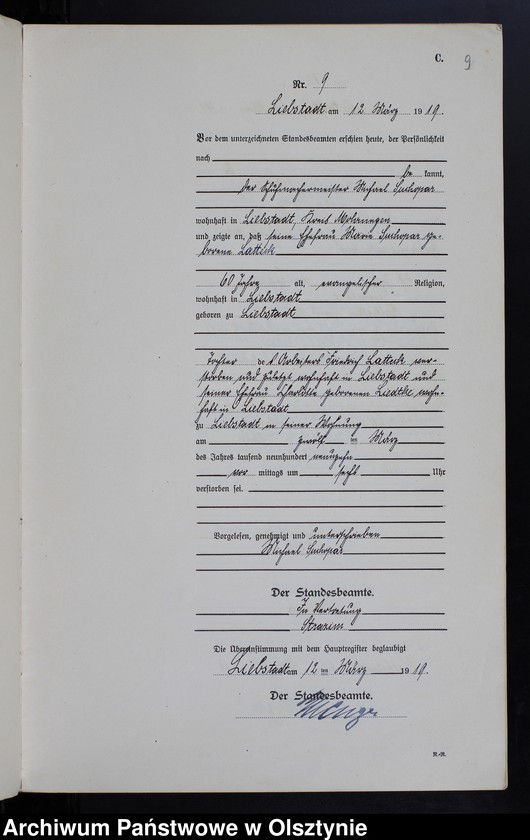 C.
9
Nr. 9
Liebstadt am 12 März 1919.
Vor dem unterzeichneten Standesbeamten erschien heute, der Persönlichkeit
nach
be kannt,
der Schuhmachermeister Michael Suchopar
wohnhaft in Liebstadt, Kreis Mohrungen
und zeigte an, daß seine Ehefrau Marie Suchopar ge-
borene Lattek
60 Jahre alt, evangelischer Religion,
wohnhaft in Liebstadt
geboren zu Liebstadt
Tochter des Arbeiters Friedrich Lattek ver-
storben und zuletzt wohnhaft in Liebstadt und
seiner Ehefrau Charlotte geborenen Liedtke wohn-
haft in Liebstadt
zu Liebstadt in seiner Wohnung
am zwölf ten März
des Jahres tausend neunhundert neunzehn
vor mittags um sechs Uhr
verstorben sei.
Vorgelesen, genehmigt und unterschrieben
Michael Suchopar
Der Standesbeamte.
In Vertretung
Die Übereinstimmung mit dem Hauptregister beglaubigt
Liebstadt am 12 ten März 1919.
Der Standesbeamte.
R.-R.
Archiwum Państwowe w Olsztynie